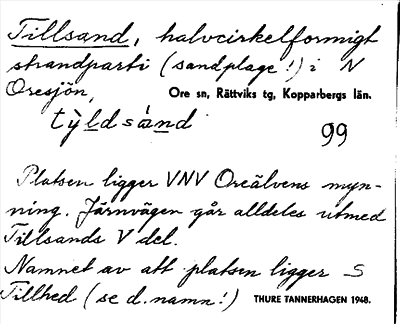 Tillsand, halvcirkelformigt
strandparti (sandplage!) i N
Oresjön,
Ore sn, Rättviks tg, Kopparbergs län.
tỳldsánd
99
Platsen ligger VNV Oreälvens myn-
ning. Järnvägen går alldeles utmed
Tillsands V del.
Namnet av att platsen ligger S
Tillhed (se d. namn!)
THURE TANNERHAGEN 1948.